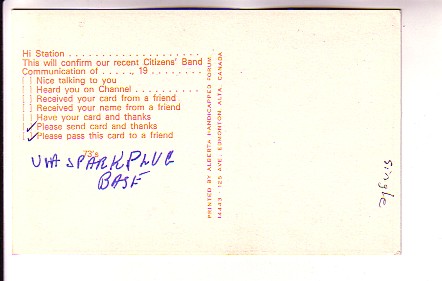 Hi Station . . . . . . . . . . . . . . . . . . . .
This will confirm our recent Citizens' Band
Communication of . . . . ., 19 . . . . . . . .
[ ] Nice talking to you
[ ] Heard you on Channel . . . . . . . . . .
[ ] Received your card from a friend
[ ] Received your name from a friend
[ ] Have your card and thanks
[✓] Please send card and thanks
[✓] Please pass this card to a friend
73's
VIA SPARKPLUG
BASE
PRINTED BY ALBERTA HANDICAPPED FORUM
14443 - 125 AVE. EDMONTON ALTA. CANADA
single